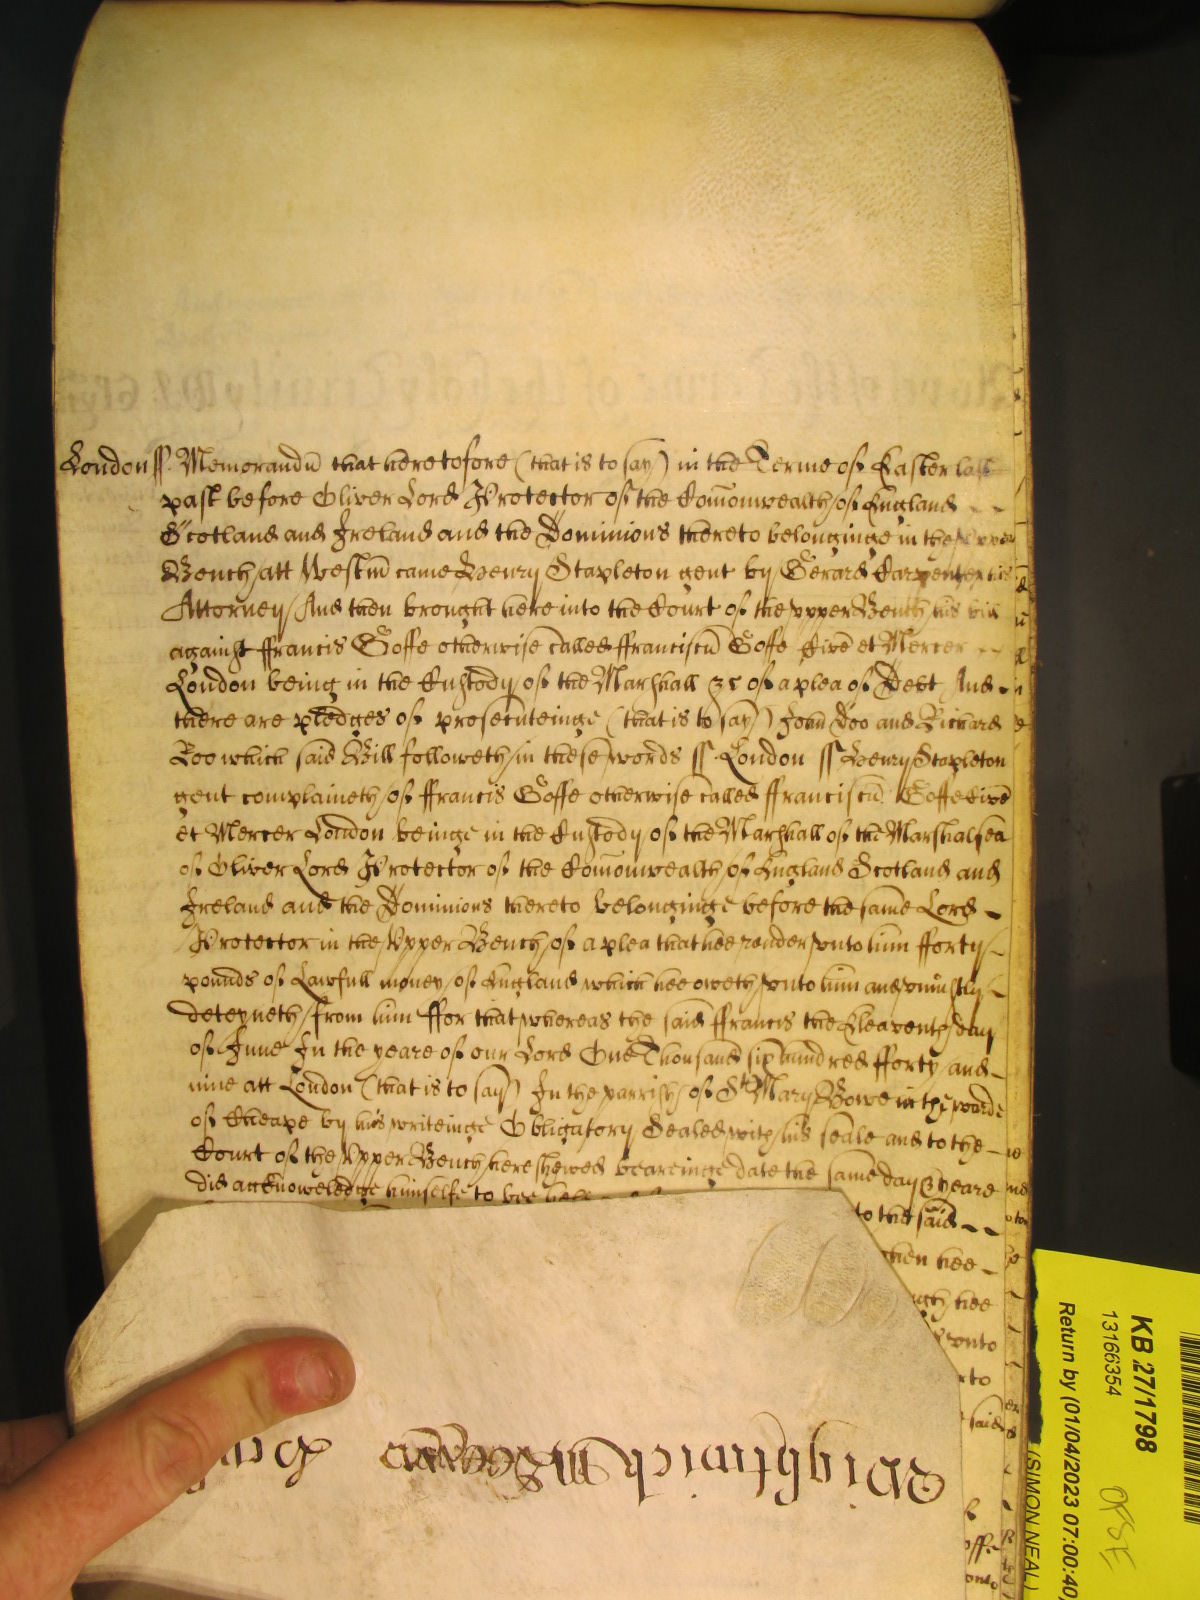 London ss. Memorandū that heretofore (that is to say) in the Terme of Easter last
past before Oliver Lord Protector of the Comōnwealth of England
Scotland and Ireland and the Dominions thereto belonginge in the upper
Bench att Westm̄ came Henry Stapleton gent by Gerard Carpenter his
Attorney And then brought here into the Court of the vpper Bench his bill
against ffrancis Goffe otherwise called ffranciscū Goffe Civē et Mercer
London being in the Custody of the Marshall &c of a plea of Debt And
there are pledges of prosecuteinge (that is to say) John Doo and Richard
Roo which said Bill followeth in these words ss. London ss Henry Stapleton
gent complaineth of ffrancis Goffe otherwise called ffranciscū Goffe Civē
et Mercer London beinge in the Custody of the Marshall of the Marshalsea
of Oliver Lord Protector of the Comōnwealth of England Scotland and
Ireland and the Dominions thereto belonginge before the same Lord
Protector in the Vpper Bench of a plea that hee render vnto him fforty
pounds of Lawfull money of England which hee oweth vnto him and vniustly
deteyneth from him ffor that whereas the said ffrancis the Eleaventh day
of June In the yeare of our Lord One Thousand six hundred fforty and
nine att London (that is to say) In the parrish of St Mary Bowe in the warde
of Cheape by his writeinge Obligatory Sealed with his seale and to the
Court of the Vpper Bench here shewed beareinge date the same day & yeare
did acknowledge himselfe to bee
to the said
then hee
hee
vnto
to
said
offe
onto
Wightwick
KB 27/1798
13166354
Return by (01/04/2023 07:00:40)
(SIMON NEAL)